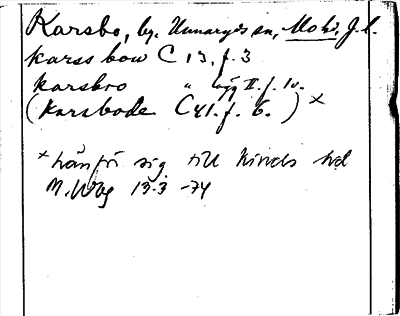 Karsbo, by. Unnaryds sn, Mobo, J.l.
karss bow C 13, f. 3
karsbro " läg II. f. 10.
(karsbode C 41. f. 6.) x
x hänför sig till Kinds hd
M. Wbg 13.3 -74